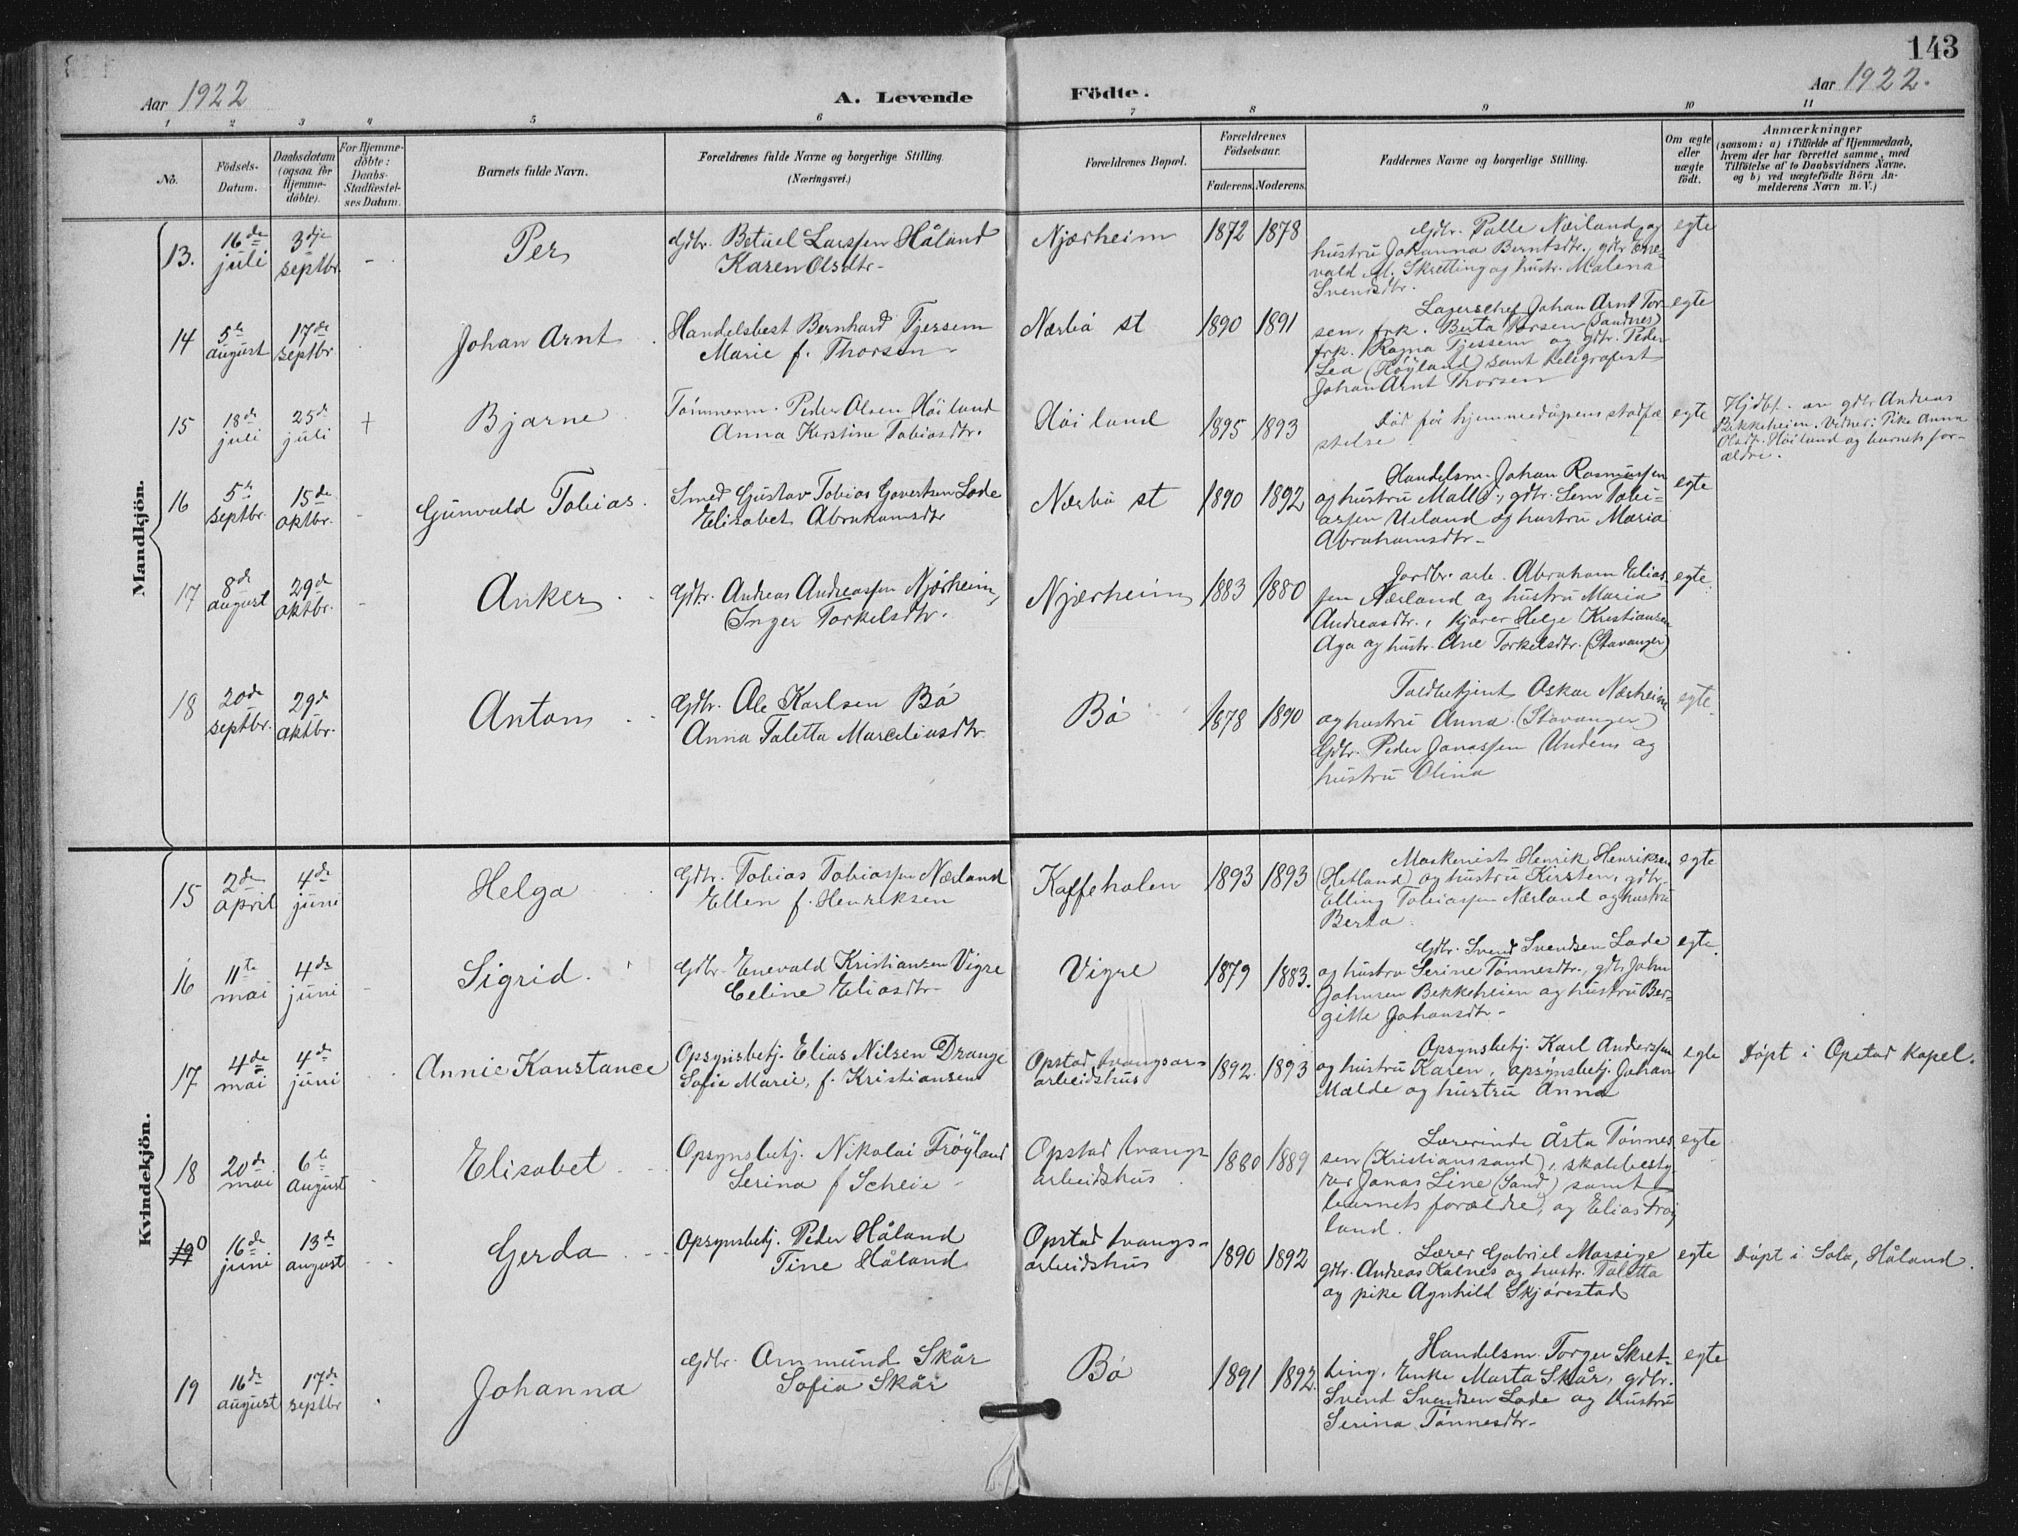 143
Aar 1922
A. Levende
Födte.
Aar 1922.
1 2 3 4 5 6 7 8 9 10 11
No.
Födsels-
Datum.
Daabsdatum
(ogsaa for
Hjemme-
döbte).
For Hjemme-
döbte:
Daabs-
Stadfæstel-
ses Datum.
Barnets fulde Navn.
Forældrenes fulde Navne og borgerlige Stilling.
(Næringsvei.)
Forældrenes Bopæl.
Forældrenes
Födselsaar.
Faderens. Moderens.
Faddernes Navne og borgerlige Stilling.
Om ægte
eller
uægte
födt.
Anmærkninger
(saasom: a) i Tilfælde af Hjemmedaab,
hvem der har forrettet samme, med
Tilföielse af to Daabsvidners Navne,
og b) ved uægtefödte Börn An-
melderens Navn m. V.)
Mandkjön.
13.
16de
juli
3dje
septbr.
-
Per
Gdbr. Betuel Larssen Håland
Karen Olsdtr.
Njærheim
1872 1878
Gdbr. Palle Nærland og
hustru Johanna Berntsdtr., gdbr. Ene-
vald M. Skretting og hustr. Malena
Svendsdtr.
egte
14
5te
august
17de
septbr.
Johan Arnt
Handelsbest Bernhard Tjessem
Marie f. Thorsen
Nærbö st
1890 1891
Lagerschef Johan Arnt Tor-
sen, frk. Berta Torsen (Sandnes)
frk. Ragna Tjessem og gdbr. Peder
Lea (Höyland) samt telegrafest
Johan Arnt Thorsen
egte
15
18de
juli
25de
juli
+
Bjarne
Tömmerm. Peder Olsen Höiland
Anna Kirstine Tobiasdtr.
Höiland
1895 1893
Död för hjemmedåpens stadfæ
stelse
egte
Hjdbt. av gdbr Andreas
Bekkeheien. Vidner: Pike Anna
Olsdtr. Höiland og barnets for-
ældre.
16
5te
septbr.
15de
oktbr.
-
Gunvald Tobias.
Smed Gustav Tobias Govertsen Lode
Elisabet Abrahamsdtr
Nærbö st
1890 1892
Handelsm. Johan Rasmussen
og hustru Malli, gdbr. Sem Tobi-
assen Ueland og hustru Maria
Abrahamsdtr.
egte
17
8de
august
29de
oktbr.
-
Anker
Gdbr. Andreas Andreassen Njærheim,
Inger Torkelsdtr.
Njærheim
1883 1880
Jordbr. arb. Abraham Elias-
sen Nærland og hustru Maria
Andreasdtr., kjører Helge Kristiansen
Aga og hustr. Ane Torkelsdtr. (Stavanger)
egte.
18
20de
septbr.
29de
oktbr.
Anton
Gdbr. Ole Karlsen Bö
Anna Taletta Marceliusdtr
Bö
1878 1890
Toldbetjent Oskar Nærheim
og hustru Anna. (Stavanger)
Gdbr. Peder Jonassen Undem og
hustru Olina
egte.
Kvindekjön.
15
2den
april
4de
juni
Helga
Gdbr. Tobias Tobiassen Nærland
Ellen f. Henriksen
Kaffeholen
1893 1893
Maskenist Henrik Henriksen
(Hetland) og hustru Kirsten, gdbr.
Elling Tobiassen Nærland og hustru
Berta.
egte
16
11te
mai
4de
juni
-
Sigrid.
Gdbr. Enevald Kristiansen Vigre
Celine Eliasdtr.
Vigre
1879 1883.
Gdbr. Svend Svendsen Lode
og hustru Serine Tönnesdtr., gdbr John
Johnsen Bekkeheien og hustru Ber-
gitte Johansdtr.
egte.
17
4de
mai
4de
juni
Annie Konstance
Opsynsbetj. Elias Nilsen Drange
Sofie Marie, f. Kristiansen
Opstad tvangsar-
arbeidshus
1892. 1893
Opsynsbetj. Karl Anderssen
og hustru Karen, opsynsbetj. Johan
Malde og hustru Anna
egte
Döpt i Opstad kapel.
18
20de
mai
6te
august
Elisabet
Opsynsbetj. Nikolai Fröyland
Serina f Scheie
Opstad tvangs-
arbeidshus
1880 1889
Lærerinde Åsta Tönnes
sen (Kristianssand), skolebesty
rer Jonas Line (Sand) samt
barnets forældre, og Elias Fröy
land.
egte
190
16de
juni
13de
august
Gerda
Opsynsbetj. Peder Håland
Tine Håland
Opstad tvangs-
arbeidshus
1890 1892
Lærer Gabriel Mossige
gdbr. Andreas Kalnes og hustr. Taletta
og pike Agnhild Skjörestad
egte
Döpt i Sola, Håland.
19
16de
august
17de
septbr
Johanna
Gdbr. Ommund Skår
Sofia Skår
Bö
1891 1892.
Handelsm. Torger Skret-
ting, Enke Marta Skår, gdbr.
Svend Svendsen Lode og hustru
Serina Tönnesdtr.
egte